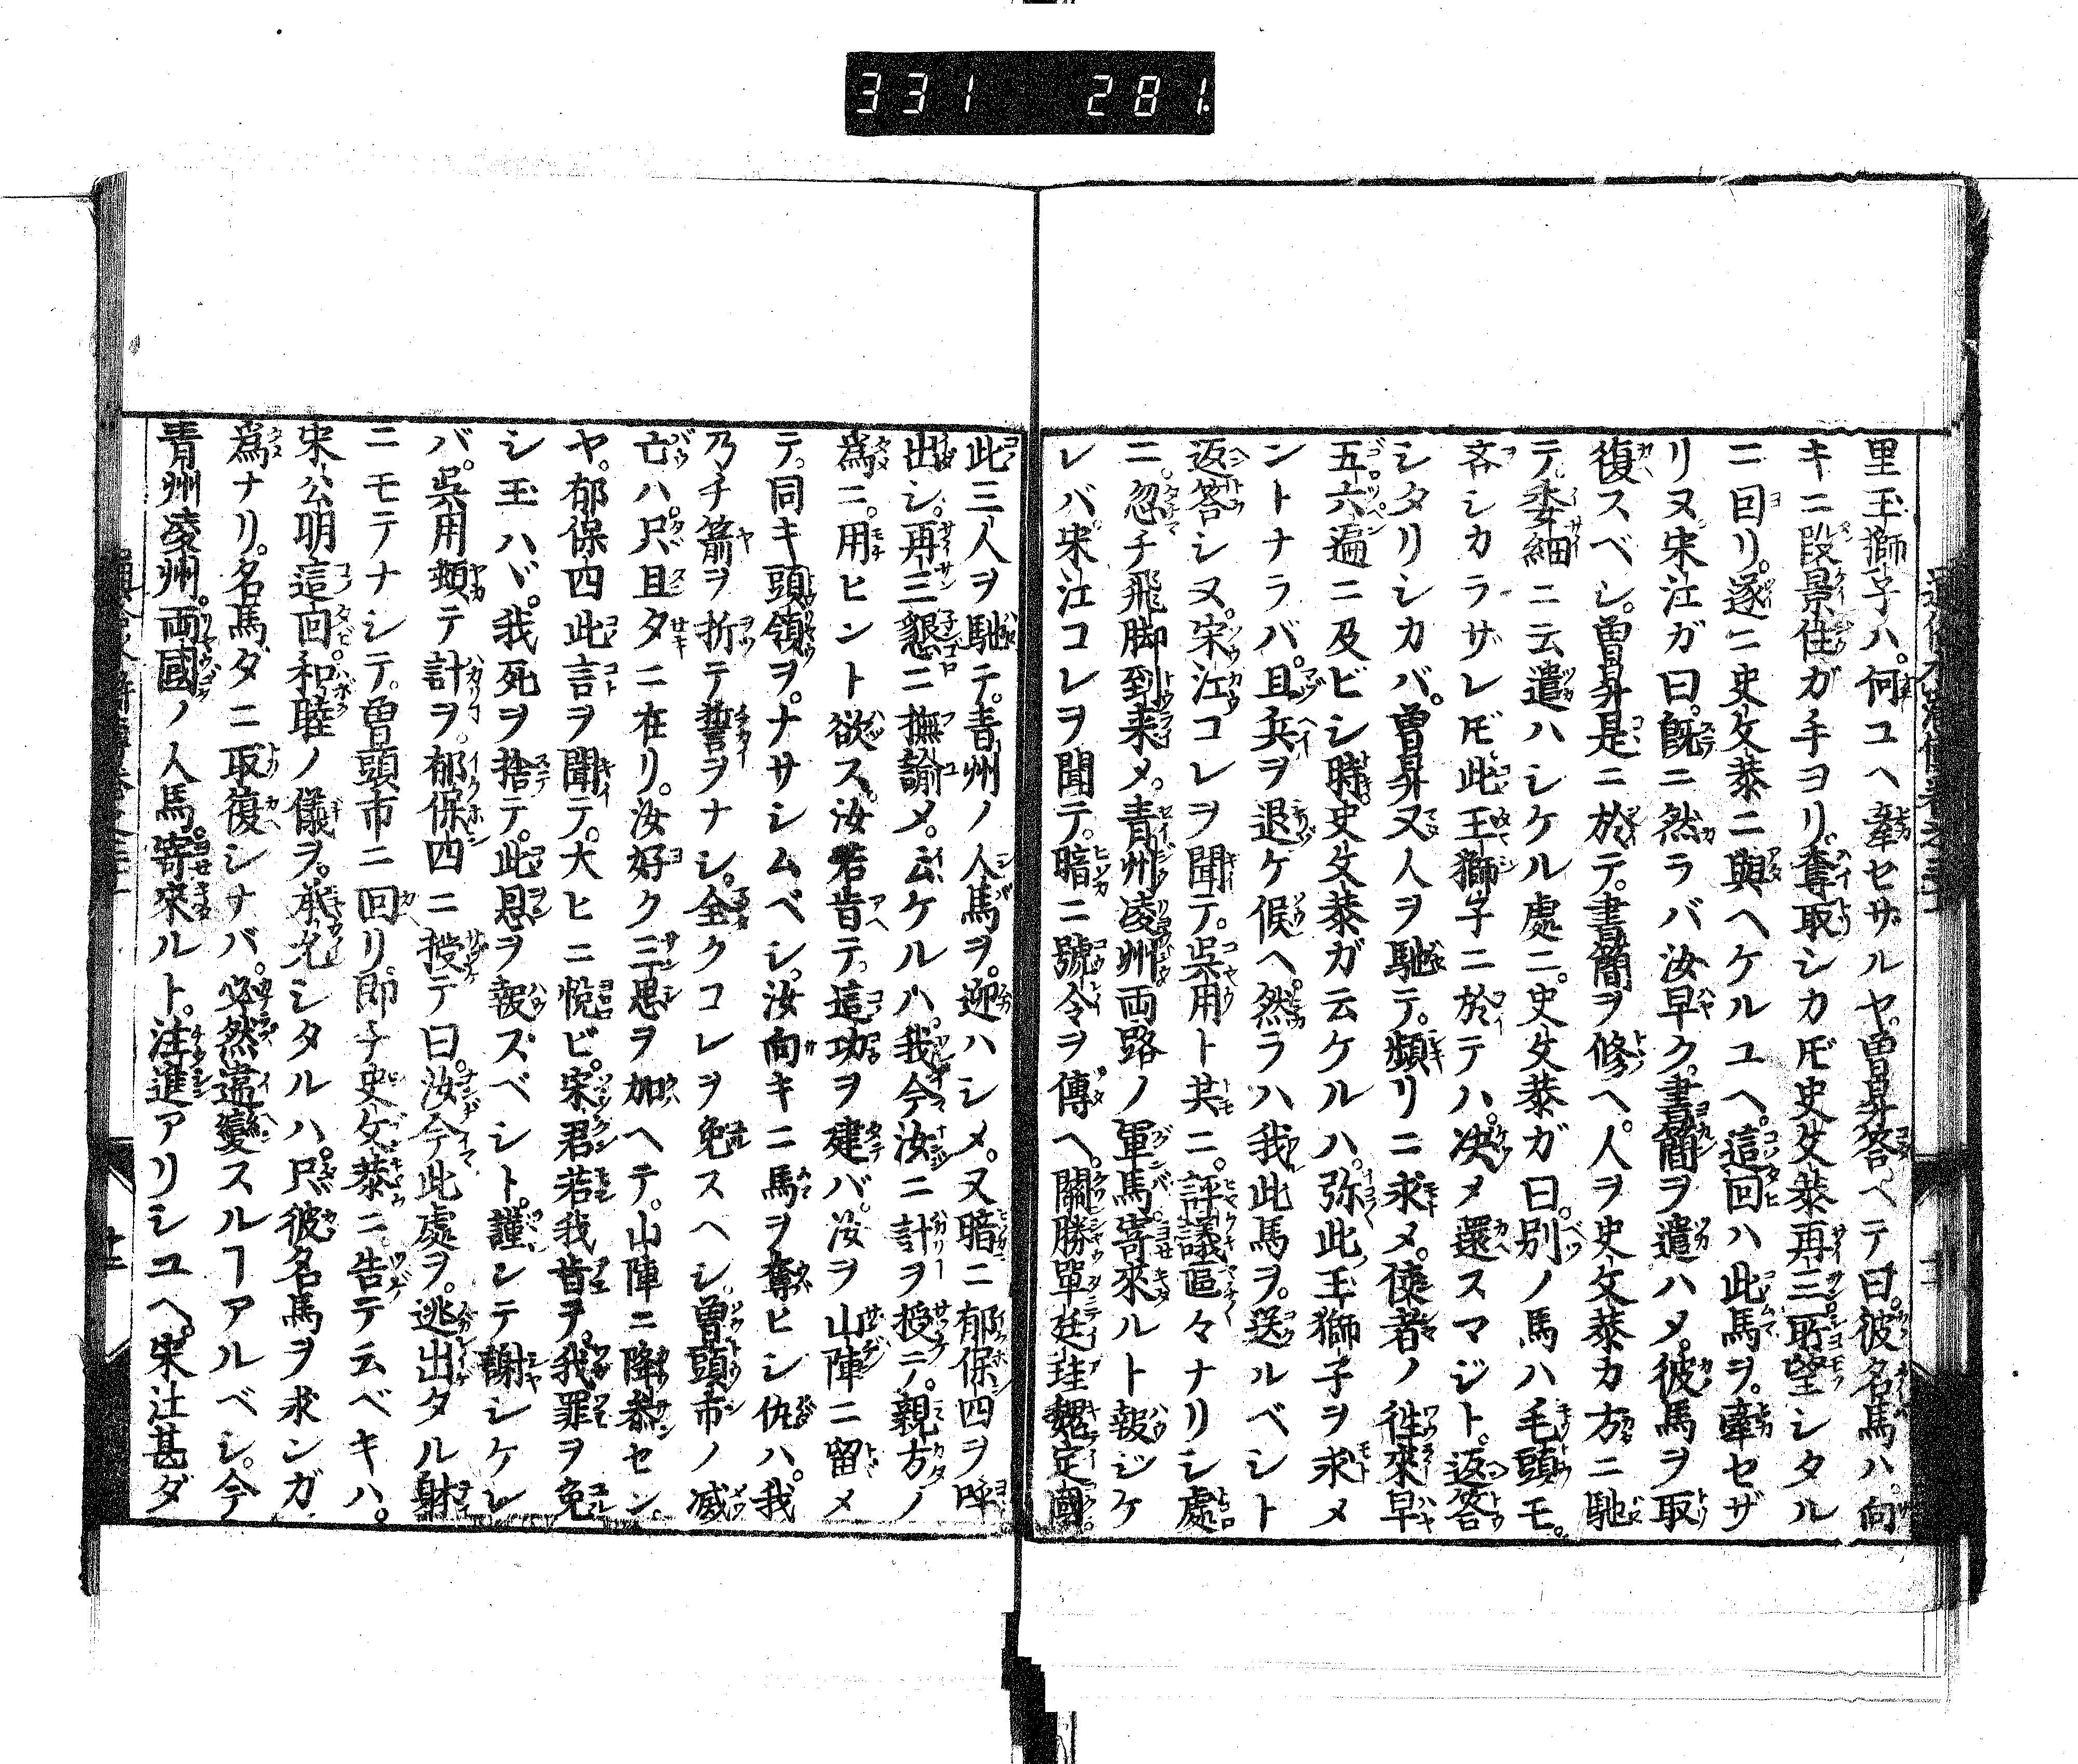 331 281
里玉獅子ハ。何ユヘ牽セザルヤ。曽昇答ヘテ曰。彼名馬ハ。向
キニ段景住ガ手ヨリ。奪取シカ𪜈史文恭再三所望シタル
ニ回リ。遂ニ史文恭ニ與ヘケルユヘ。這回ハ此馬ヲ。牽セザ
リヌ宋江ガ曰。既ニ然ラバ汝早ク。書簡ヲ遣ハメ。彼馬ヲ取
復スベシ。曽昇是ニ於テ。書簡ヲ修ヘ。人ヲ史文恭カ方ニ馳
テ。委細ニ云遣ハシケル處ニ。史文恭ガ曰。別ノ馬ハ毛頭モ。
吝シカラザレ𪜈此玉獅子ニ於テハ。決メ還スマジト。返答
シタリシカバ。曽昇又人ヲ馳テ。頻リニ求メ。使者ノ徃來早
五六遍ニ及ビシ時。史文恭ガ云ケルハ。弥此玉獅子ヲ求メ
ントナラバ。且兵ヲ退ケ候ヘ。然ラハ我此馬ヲ。送ルベシト
返答シヌ。宋江コレヲ聞テ。呉用ト共ニ。評議區々ナリシ處
ニ。忽チ飛脚到来メ。青州凌州両路ノ軍馬。寄來ルト報ジケ
レバ宋江コレヲ聞テ。暗ニ號令ヲ傳ヘ。關勝單廷珪魏定國。
此三人ヲ馳テ。青州ノ人馬ヲ。迎ハシメ。又暗ニ郁保四ヲ呼
出シ。再三懇ニ撫諭メ。云ケルハ。我今汝ニ計ヲ授テ。親方ノ
為ニ。用ヒント欲ス。汝若肯テ。這功ヲ建バ。汝ヲ山陣ニ留メ
テ。同キ頭領ヲ。ナサシムベシ。汝向キニ馬ヲ奪ヒシ仇ハ。我
乃チ箭ヲ折テ誓ヲナシ。全クコレヲ免スヘシ。曽頭市ノ滅
亡ハ。只且タニ在リ。汝好ク三思ヲ加ヘテ。山陣ニ降参セン
ヤ。郁保四此言ヲ聞テ。大ヒニ悦ビ。宋君若我肯ヲ。我罪ヲ免
シ玉ハヾ。我死ヲ捨テ。此恩ヲ報ズベシト。謹レテ謝シケレ
バ。呉用頼テ計ヲ。郁保四ニ授テ曰。汝今此處ヲ。逃出タル躰
ニモテナシテ。曽頭市ニ回リ。即チ史文恭ニ。告テ云ベキハ。
宋公明這回和睦ノ儀ヲ。承允シタルハ。只彼名馬ヲ求ンガ
為ナリ。名馬ダニ取復シナバ。必然違變スルヿアルベシ。今
青州凌州。両國ノ人馬。寄來ルト。注進アリシユヘ。宋江甚ダ